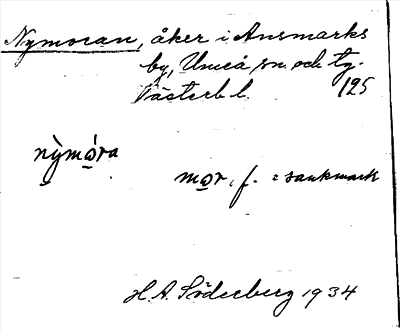 Nymoran, åker i Ansmarks
by, Umeå sn. och tg.
Västerb. l. 125
nỳmóra
mor, f. = sankmark
H. A. Söderberg 1934